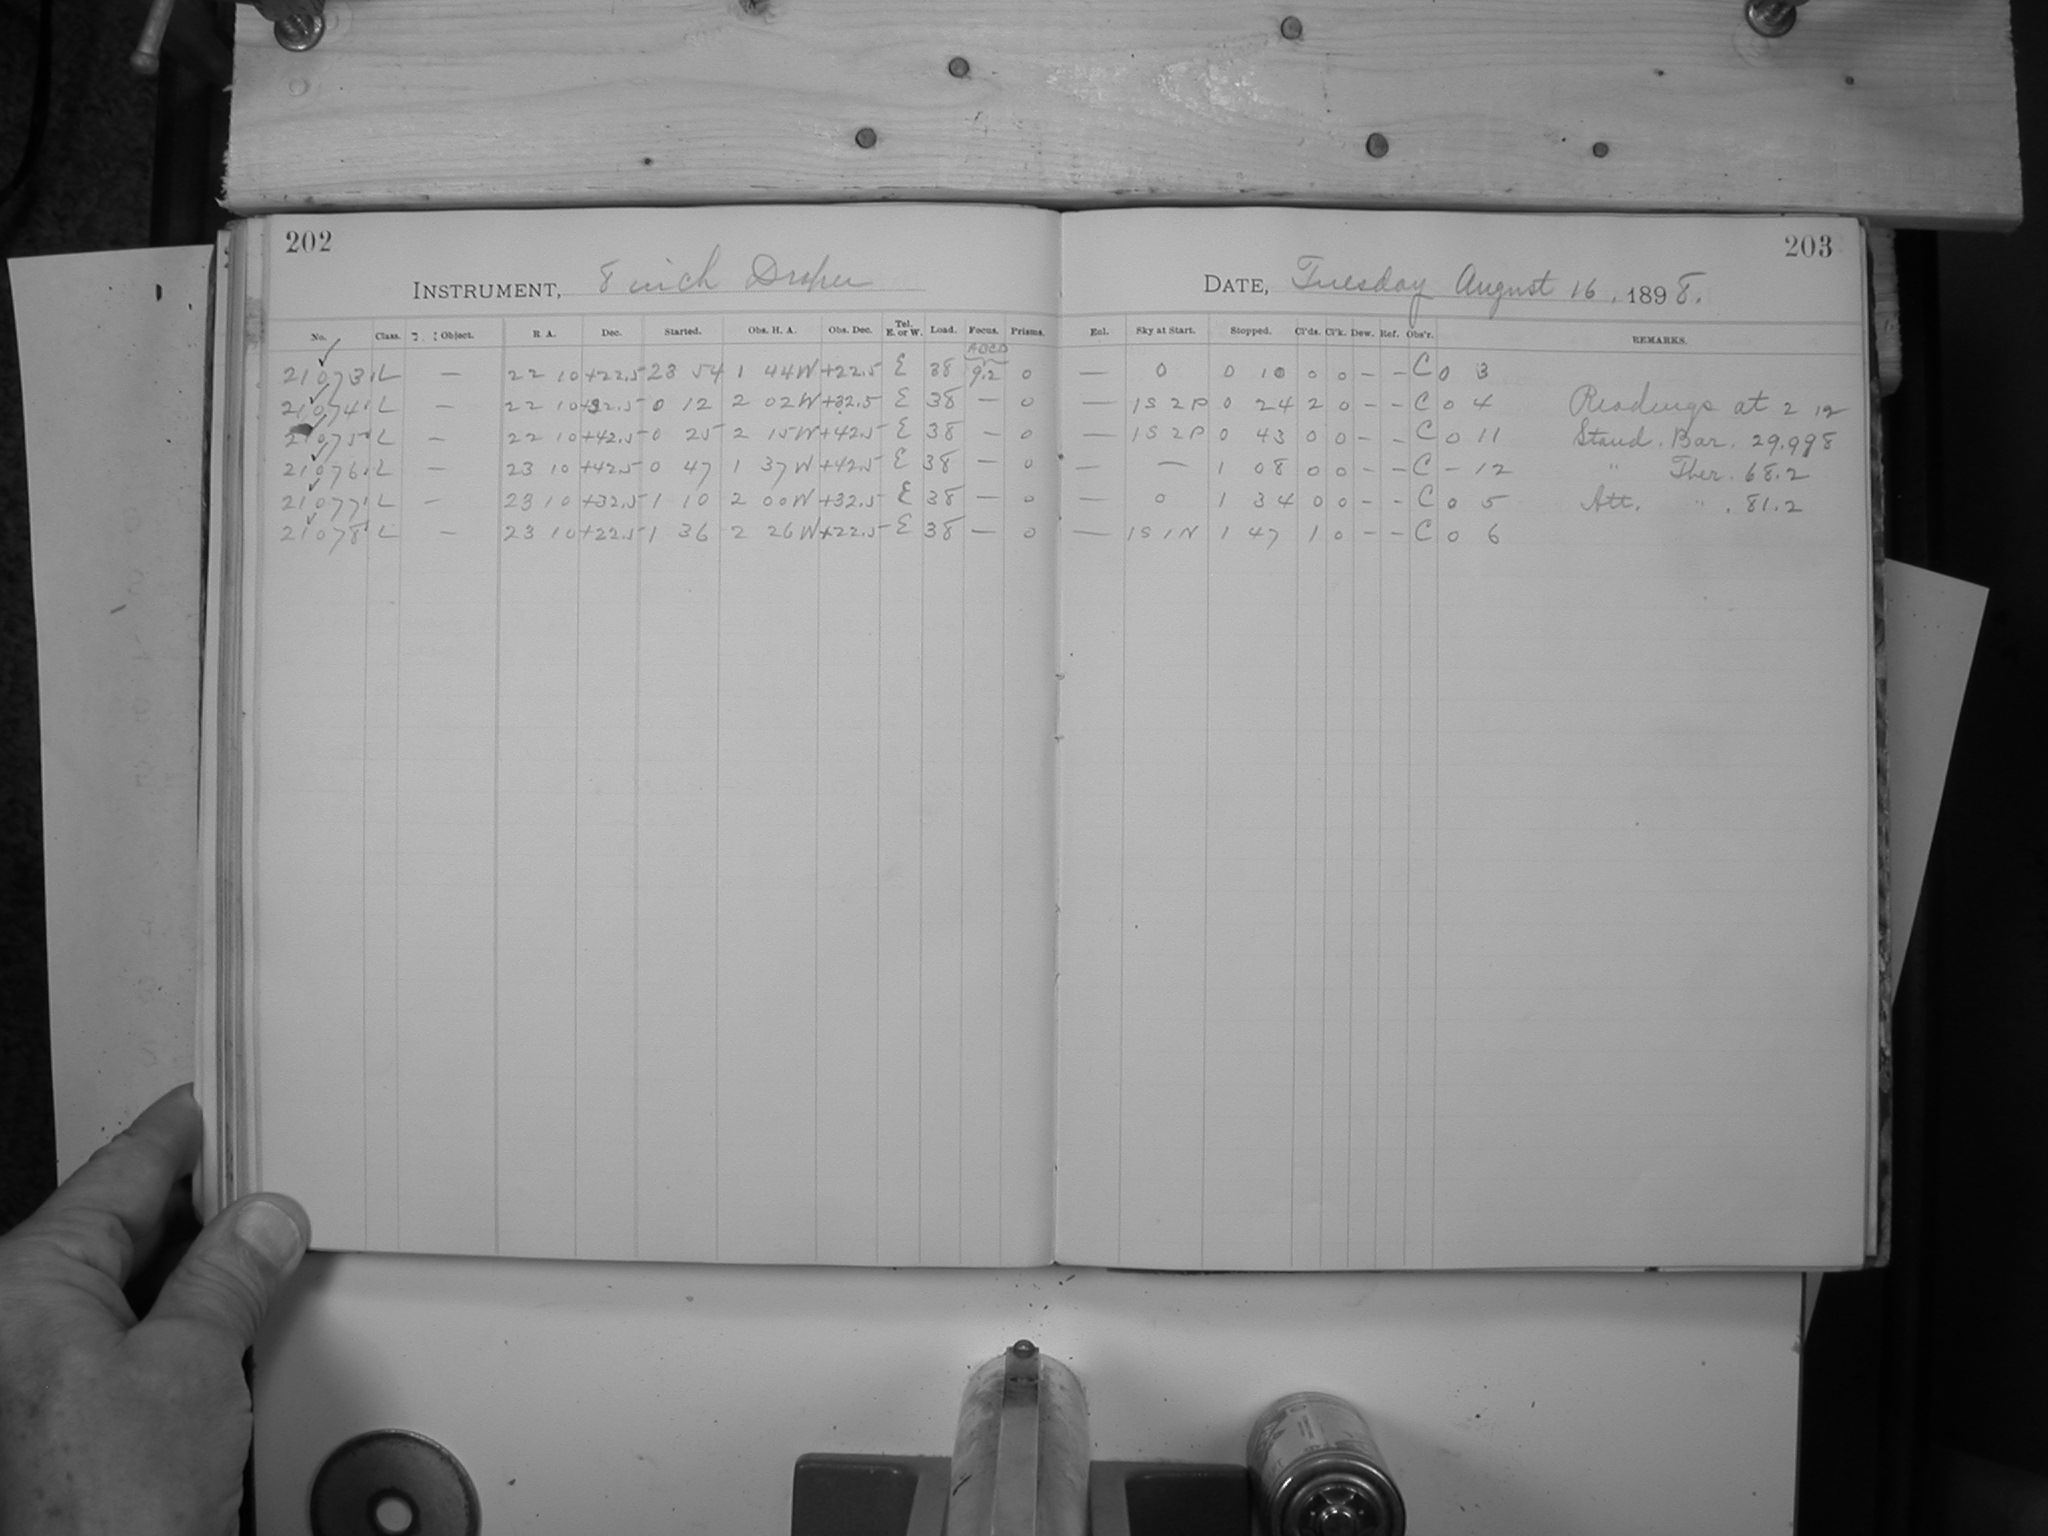 202
INSTRUMENT, 8 inch Draper
No. Class. Object. R A. Dec. Started. Obs. H. A. Obs. Dec. Tel. E. or W. Load. Focus. Prisms.
ABCD
21073 L — 22 10 +22.5 23 54 1 44W +22.5 E 38 9.2 0
21074 L — 22 10 +32.5 0 12 2 02W +32.5 E 38 — 0
21075 L — 22 10 +42.5 0 25 2 15W +42.5 E 38 — 0
21076 L — 23 10 +42.5 0 47 1 37W +42.5 E 38 — 0
21077 L — 23 10 +32.5 1 10 2 00W +32.5 E 38 — 0
21078 L — 23 10 +22.5 1 36 2 26W +22.5 E 38 — 0
203
DATE, Tuesday August 16, 1898.
Eul. Sky at Start. Stopped. Cl'ds. Cl'k. Dew. Ref. Obs'r. REMARKS.
— 0 0 10 0 0 - - C 0 3
— 1S 2P 0 24 2 0 - - C 0 4 Readings at 2 12
— 1S 2P 0 43 0 0 - - C 0 11 Stand. Bar. 29.998
— — 1 08 0 0 - - C - 12 " Ther. 68.2
— 0 1 34 0 0 - - C 0 5 Att. " . 81.2
— 1S 1N 1 47 1 0 - - C 0 6